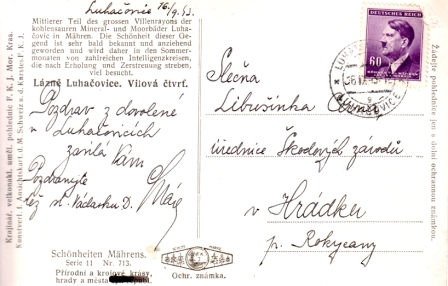 Luhačovice 16/9. 43.
Mittlerer Teil des grossen Villenrayons der
kohlensauren Mineral- und Moorbäder Luha-
čovice in Mähren. Die Schönheit dieser Ge-
gend ist sehr bald bekannt und anziehend
geworden und wird daher in den Sommer-
monaten von zahlreichen Intelligenzkreisen,
die nach Erholung und Zerstreuung streben,
viel besucht.
Lázně Luhačovice. Vilová čtvrť.
Pozdrav z dovolené
v Luhačovicích
zasílá Vám
Pozdravujte
též sl. D.
Schönheiten Mährens.
Serie 11 Nr. 713.
Přírodní a krojové krásy,
hrady a města
Ochr. známka.
Krajinář. velkonakl. uměl. pohlednic F. K. J. Mor. Kras.
Žádejte pohlednice jen s dolní ochrannou známkou.
DEUTSCHES REICH
60
LUHAČOVICE
Slečna
Libušinka
úřednice Škodových závodů
v Hrádku
p. Rokycany